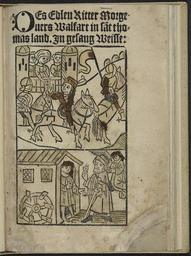 Des Edlen Ritter Morge
ners Walfart in sāt tho-
mas land. In gesang Weisse: